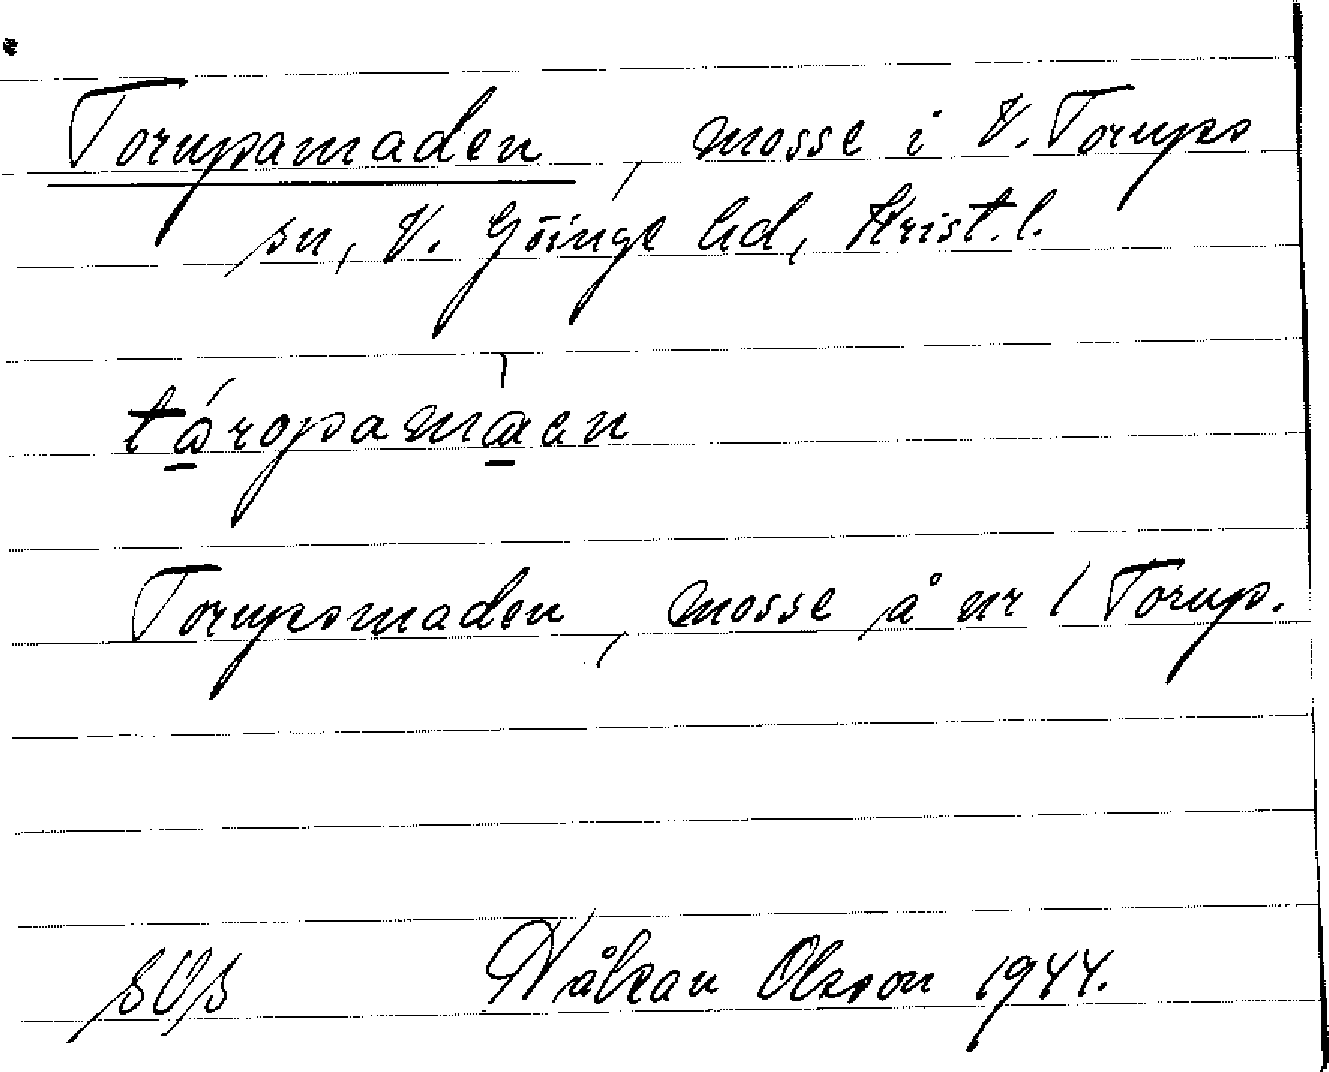 Torupamaden, mosse i V. Torups
sn, V. Göinge hd, Krist. l.
táropamaen
Torupsmaden, mosse å nr 1 Torup.
Håkan Olsson 1944.